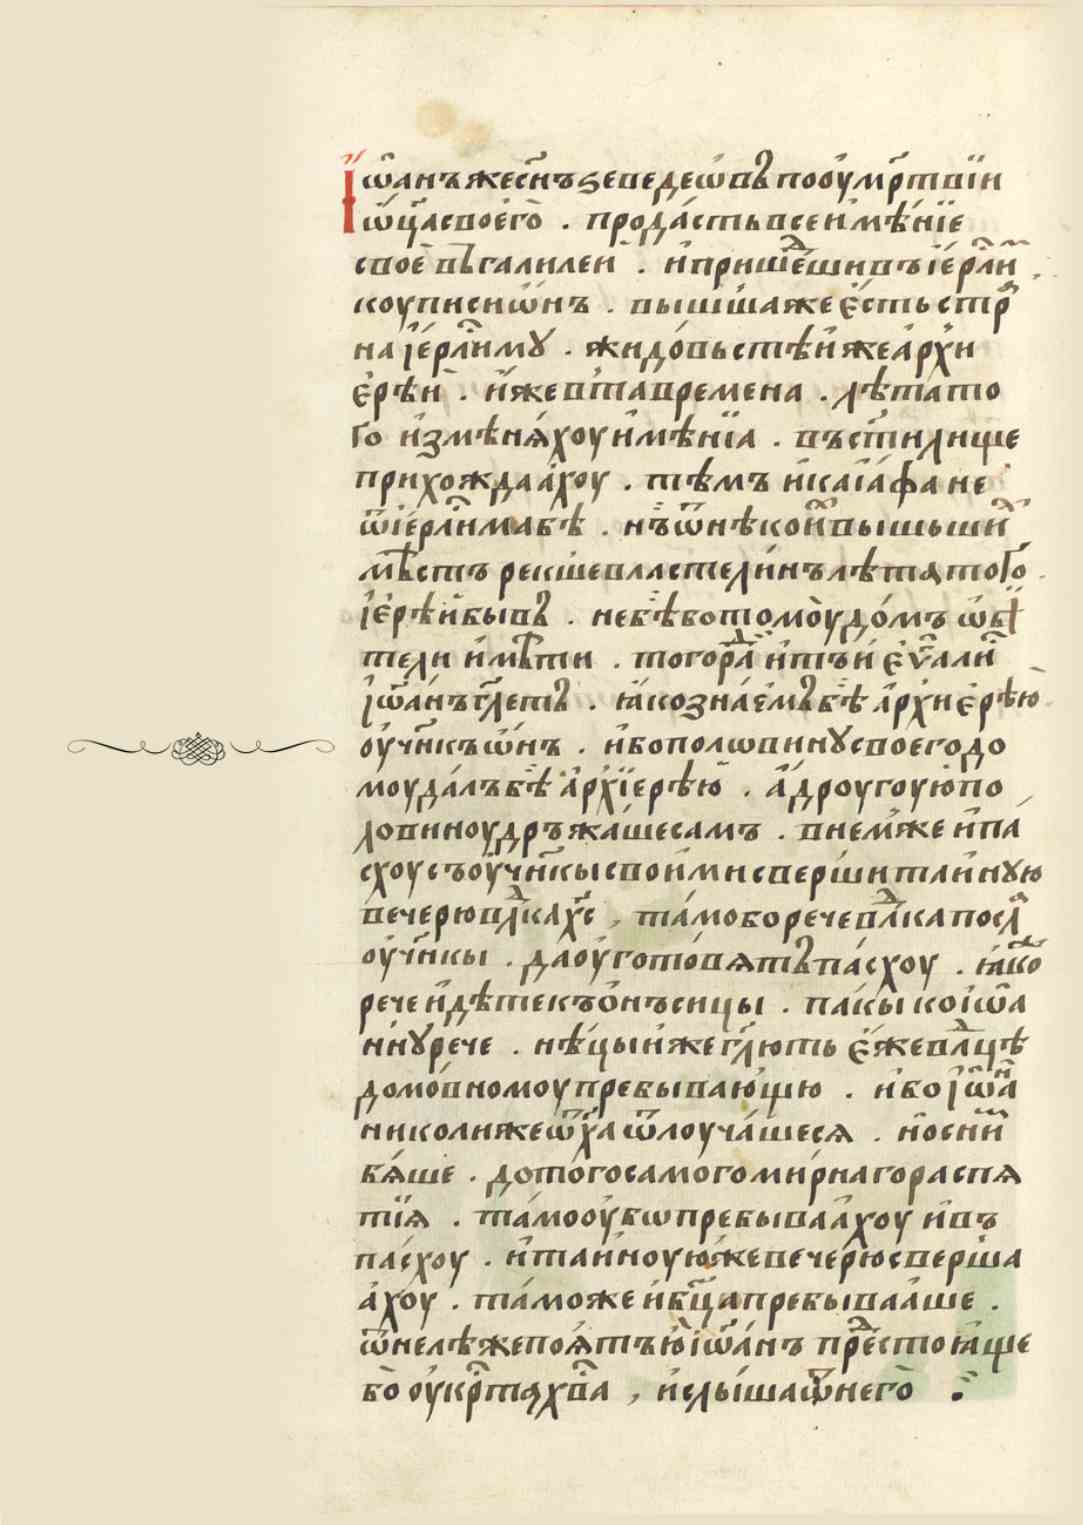 Їѡ҃анъ же сн҃ъ зеведеѡвъ по оумр҃твїи
ѿц҃а своего̀ . прода́сть все и҆мѣ́нїе
своѐ въ галилеи . и҆ прише́дши въ і҆ерⷭ҇лим
коупи сиѡ́нъ . вышшаѧ же є҆́сть стр҃
на і҆ерⷭ҇лиму . жидо́вьстѣи же а҆рхи
єрѣи . и҆же в та времена . лѣта то
го и҆змѣнѧ́хоу и҆мѣнїа . въ ст҃илище
прихождаа́хоу . тѣмъ и҆ каіа́фа не
ѿ і҆ерⷭ҇лима бѣ . нъ ѿ нѣкои́х вышьших
мѣстъ рекше властели́нъ лѣта того
і҆ерѣи бывъ . не бѣ бо томоу̀ до́мъ ѡби
тели и҆мѣти . тогорад и҆ тъи є҆ѵⷢ҇алист
і҆ѡа́нъ гл҃етъ . ꙗ҆ко зна́емъ бѣ а҆рхиєрѣю
оу҆чн҃къ ѡ҆нъ . и҆бо половину своего до
моу да́лъ бѣ а҆рхїерѣю . а҆ дроугоую по
ловиноу дръжа́ше самъ . в нем же и҆ па́
схоу съ оу҆чн҃кы свои́ми сверши таи́ную
вечерю влⷣка хс҃ , та́мо бо рече влⷣка посла
оу҆чн҃кы . да оу҆гото́вѧтъ па́схоу . ꙗ҆коже
рече и҆дѣте къ о҆нъсицы . па́кы ко і҆ѡа
нну рече . нѣ́цыи же гл҃ють є҆́же влⷣцѣ
домо́вномоу превываю́щю . и҆бо і҆ѡан
николи же ѿ х҃а ѿлоуча́шесѧ . но́сим
бѧ́ше . до то́го самого ми́рнаго распѧ
тїѧ . та́мо оу҆бо пребываа́хоу и҆ въ
па́схоу . и҆ таи́ноую же вече́рю сверша
а́хоу . та́може и҆ бц҃а пребываа́ше .
ѿнелѣже поѧ́тъ ю і҆ѡа́нъ предстоꙗ́ще
бо̀ оу҆ крⷭ҇та хв҃а , и҆ слы́ша ѿ него̀ .